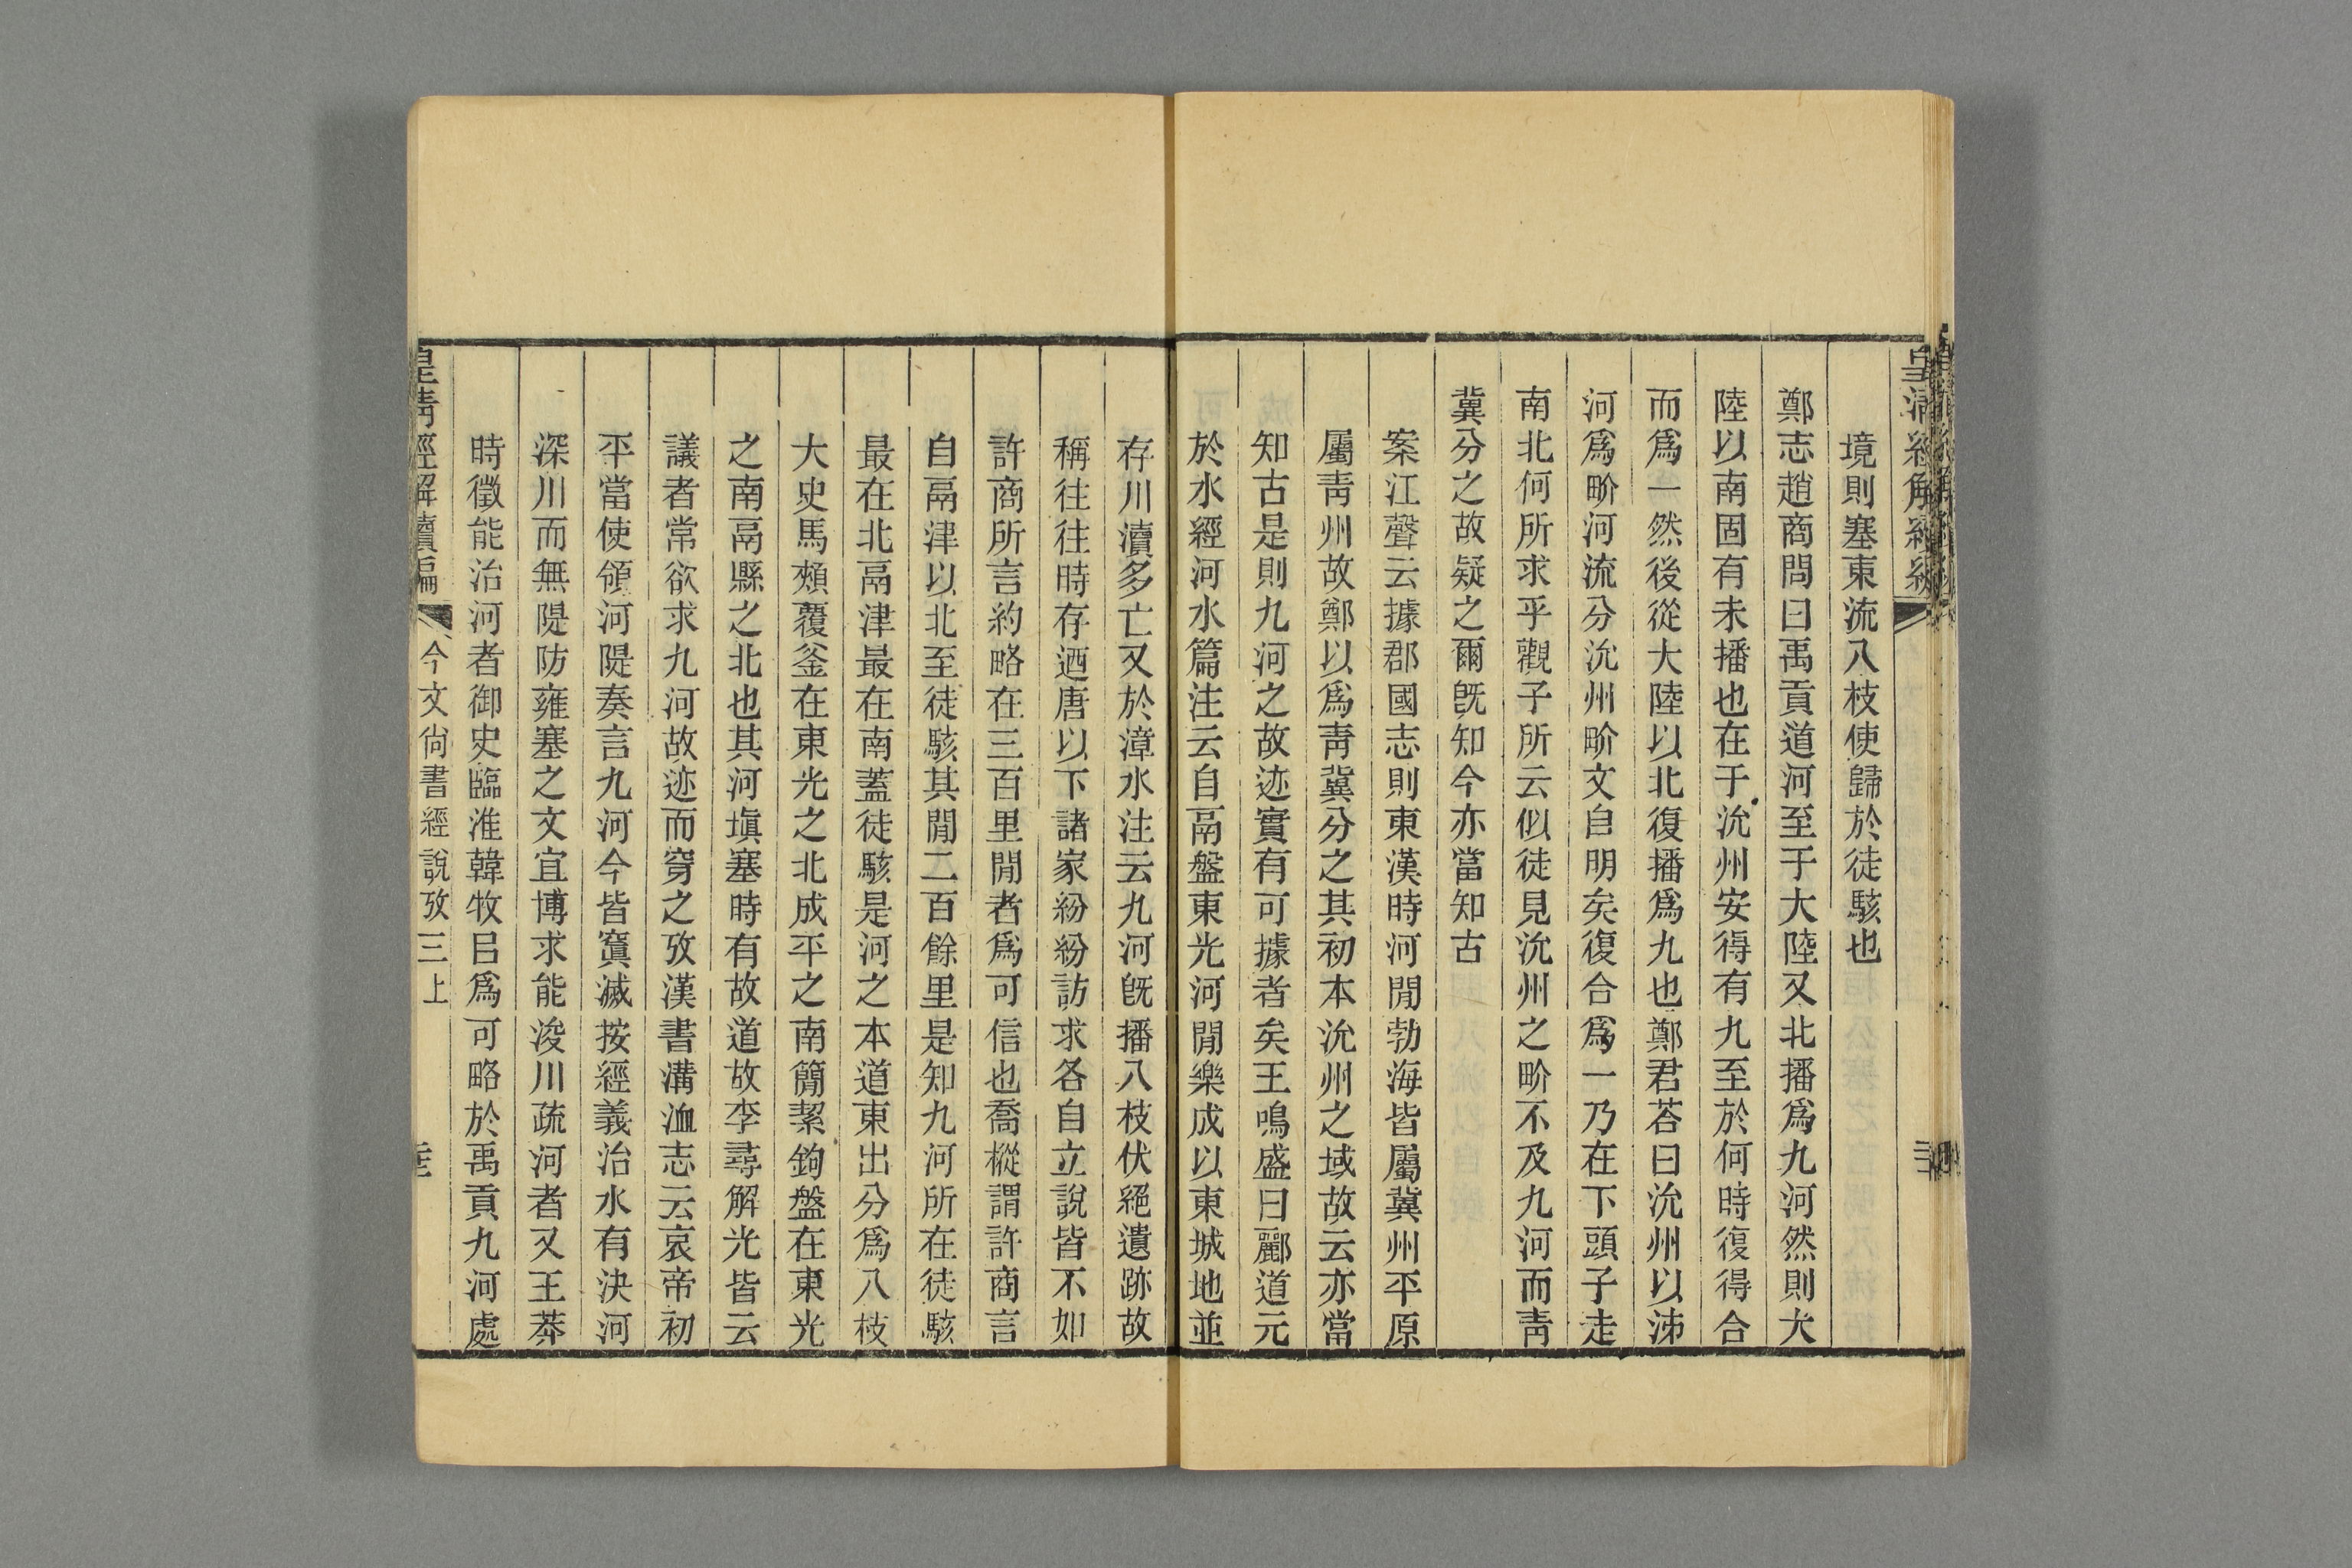 境則塞東流八枝使歸於徒駭也
鄭志趙商問曰禹貢道河至于大陸又北播爲九河然則大
陸以南固有未播也在于沇州安得有九至於何時復得合
而爲一然後從大陸以北復播爲九也鄭君荅曰沇州以泲
河爲畍河流分沇州畍文自明矣復合爲一乃在下頭子走
南北何所求乎觀子所云似徒見沇州之畍不及九河而靑
冀分之故疑之爾旣知今亦當知古
案江聲云據郡國志則東漢時河閒勃海皆屬冀州平原
屬靑州故鄭以爲靑冀分之其初本沇州之域故云亦當
知古是則九河之故迹實有可據者矣王鳴盛曰酈道元
於水經河水篇注云自鬲盤東光河閒樂成以東城地並
存川瀆多亡又於漳水注云九河旣播八枝伏絕遺跡故
稱往往時存迺唐以下諸家紛紛訪求各自立說皆不如
許商所言約略在三百里閒者爲可信也喬樅謂許商言
自鬲津以北至徒駭其閒二百餘里是知九河所在徒駭
最在北鬲津最在南蓋徒駭是河之本道東出分爲八枝
大史馬頰覆釜在東光之北成平之南簡絜鉤盤在東光
之南鬲縣之北也其河塡塞時有故道故李尋解光皆云
議者常欲求九河故迹而穿之攷漢書溝洫志云哀帝初
平當使領河隄奏言九河今皆寘滅按經義治水有決河
深川而無隄防雍塞之文宜博求能浚川疏河者又王莽
時徵能治河者御史臨淮韓牧㠯爲可略於禹貢九河處
皇清經解續編
今文尙書經說攷三上